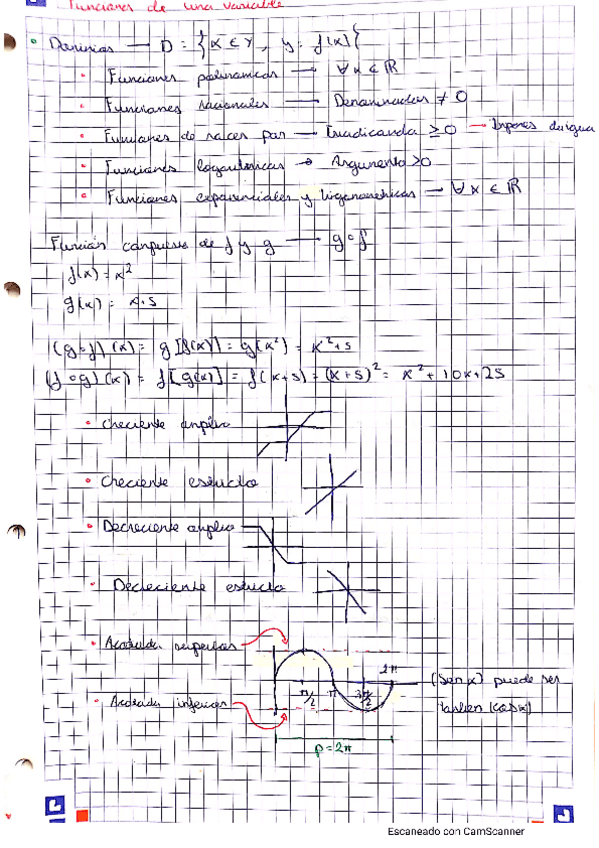 Funciones de una variable
• Dominios → D = {x ∈ Y, y = f(x)}
• Funciones polinomicas → ∀x ∈ ℝ
• Funciones racionales → Denominador ≠ 0
• Funciones de raices par → Iradicando ≥ 0 →
• Funciones logaritmicas → Argumento > 0
• Funciones exponenciales y trigonometricas → ∀x ∈ ℝ
Función compuesta de f y g → g∘f
f(x) = x²
g(x) = x+5
(g∘f)(x) = g[f(x)] = g(x²) = x²+5
(f∘g)(x) = f[g(x)] = f(x+5) = (x+5)² = x²+10x+25
• Creciente amplio
• Creciente estricto
• Decreciente amplio
• Decreciente estricto
• Acotada superior
2π
(sen x) puede ser
π/2 π 3π/2
• Acotada inferior
tambien (cos x)
P = 2π
Escaneado con CamScanner